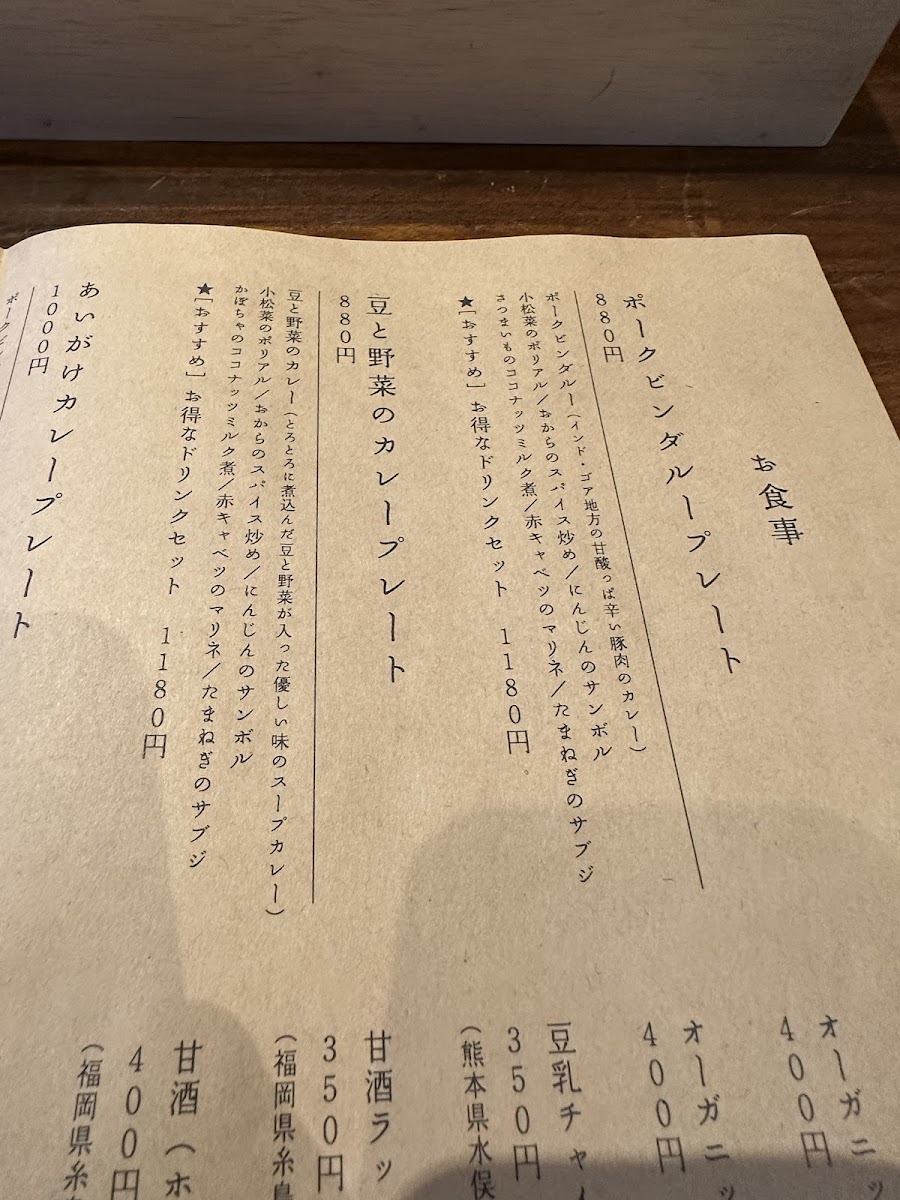 お食事
ポークビンダループレート
880円
ポークビンダルー(インド・ゴア地方の甘酸っぱ辛い豚肉のカレー)
小松菜のポリアル/おからのスパイス炒め/にんじんのサンボル
さつまいものココナッツミルク煮/赤キャベツのマリネ/たまねぎのサブジ
★[おすすめ]お得なドリンクセット 1180円
豆と野菜のカレープレート
880円
豆と野菜のカレー(とろとろに煮込んだ豆と野菜が入った優しい味のスープカレー)
小松菜のポリアル/おからのスパイス炒め/にんじんのサンボル
かぼちゃのココナッツミルク煮/赤キャベツのマリネ/たまねぎのサブジ
★[おすすめ]お得なドリンクセット 1180円
あいがけカレープレート
1000円
ポークビン
オーガニッ
400円
オーガニッ
400円
豆乳チャイ
350円
(熊本県水俣
甘酒ラッ
350円
(福岡県糸島
甘酒(ホ
400円
(福岡県糸